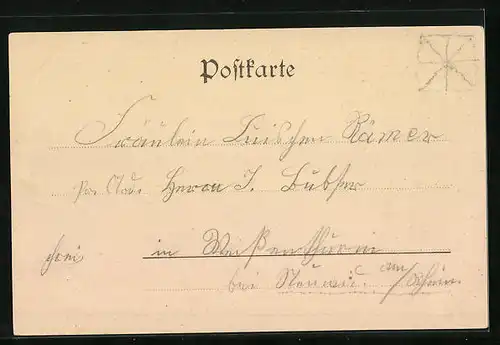 Postkarte
Fräulein Luischen Römer
p. Adr. Herrn J. Bubser
frei in Weißenthurm
bei Neuwied am/Rhein.